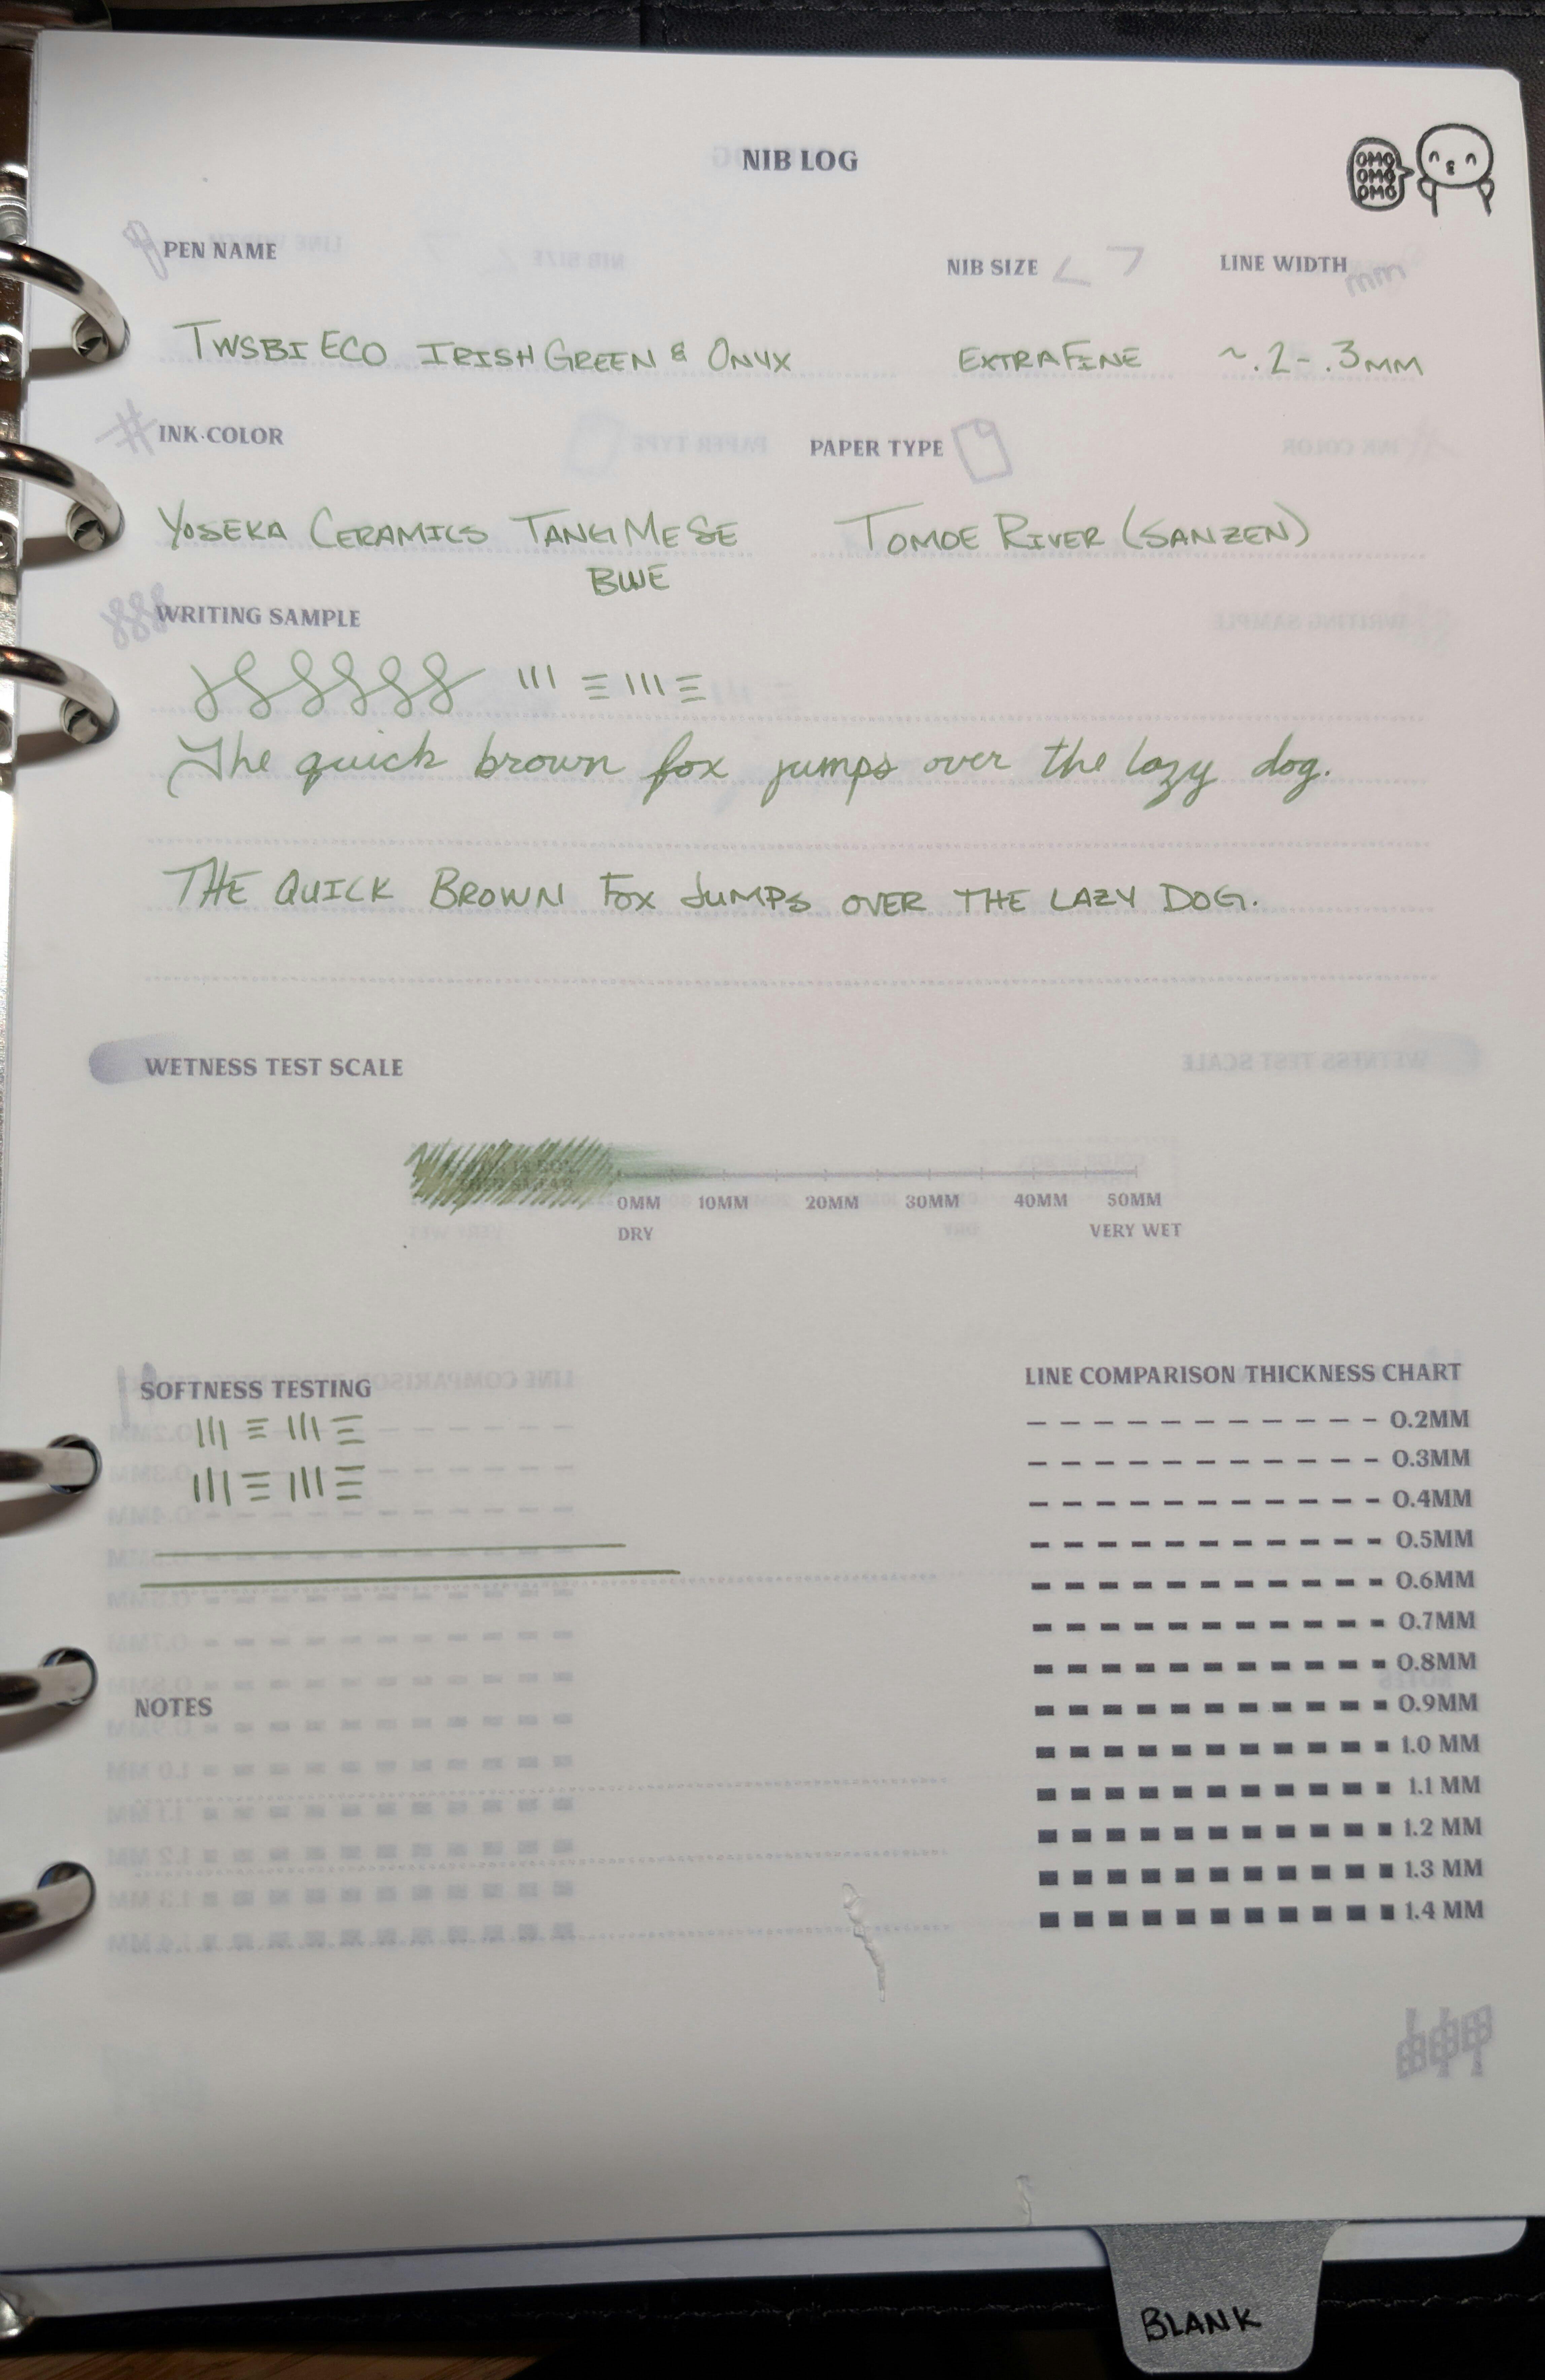 NIB LOG
OMG
OMG
OMG
PEN NAME
NIB SIZE
LINE WIDTH
mm
TWSBI ECO IRISH GREEN & ONYX
EXTRA FINE
~.2-.3MM
INK COLOR
PAPER TYPE
YOSEKA CERAMICS TANG ME SE
BLUE
TOMOE RIVER (SANZEN)
WRITING SAMPLE
The quick brown fox jumps over the lazy dog.
THE QUICK BROWN FOX JUMPS OVER THE LAZY DOG.
WETNESS TEST SCALE
0MM 10MM 20MM 30MM 40MM 50MM
DRY VERY WET
SOFTNESS TESTING
LINE COMPARISON THICKNESS CHART
0.2MM
0.3MM
0.4MM
0.5MM
0.6MM
0.7MM
0.8MM
0.9MM
1.0 MM
1.1 MM
1.2 MM
1.3 MM
1.4 MM
NOTES
BLANK